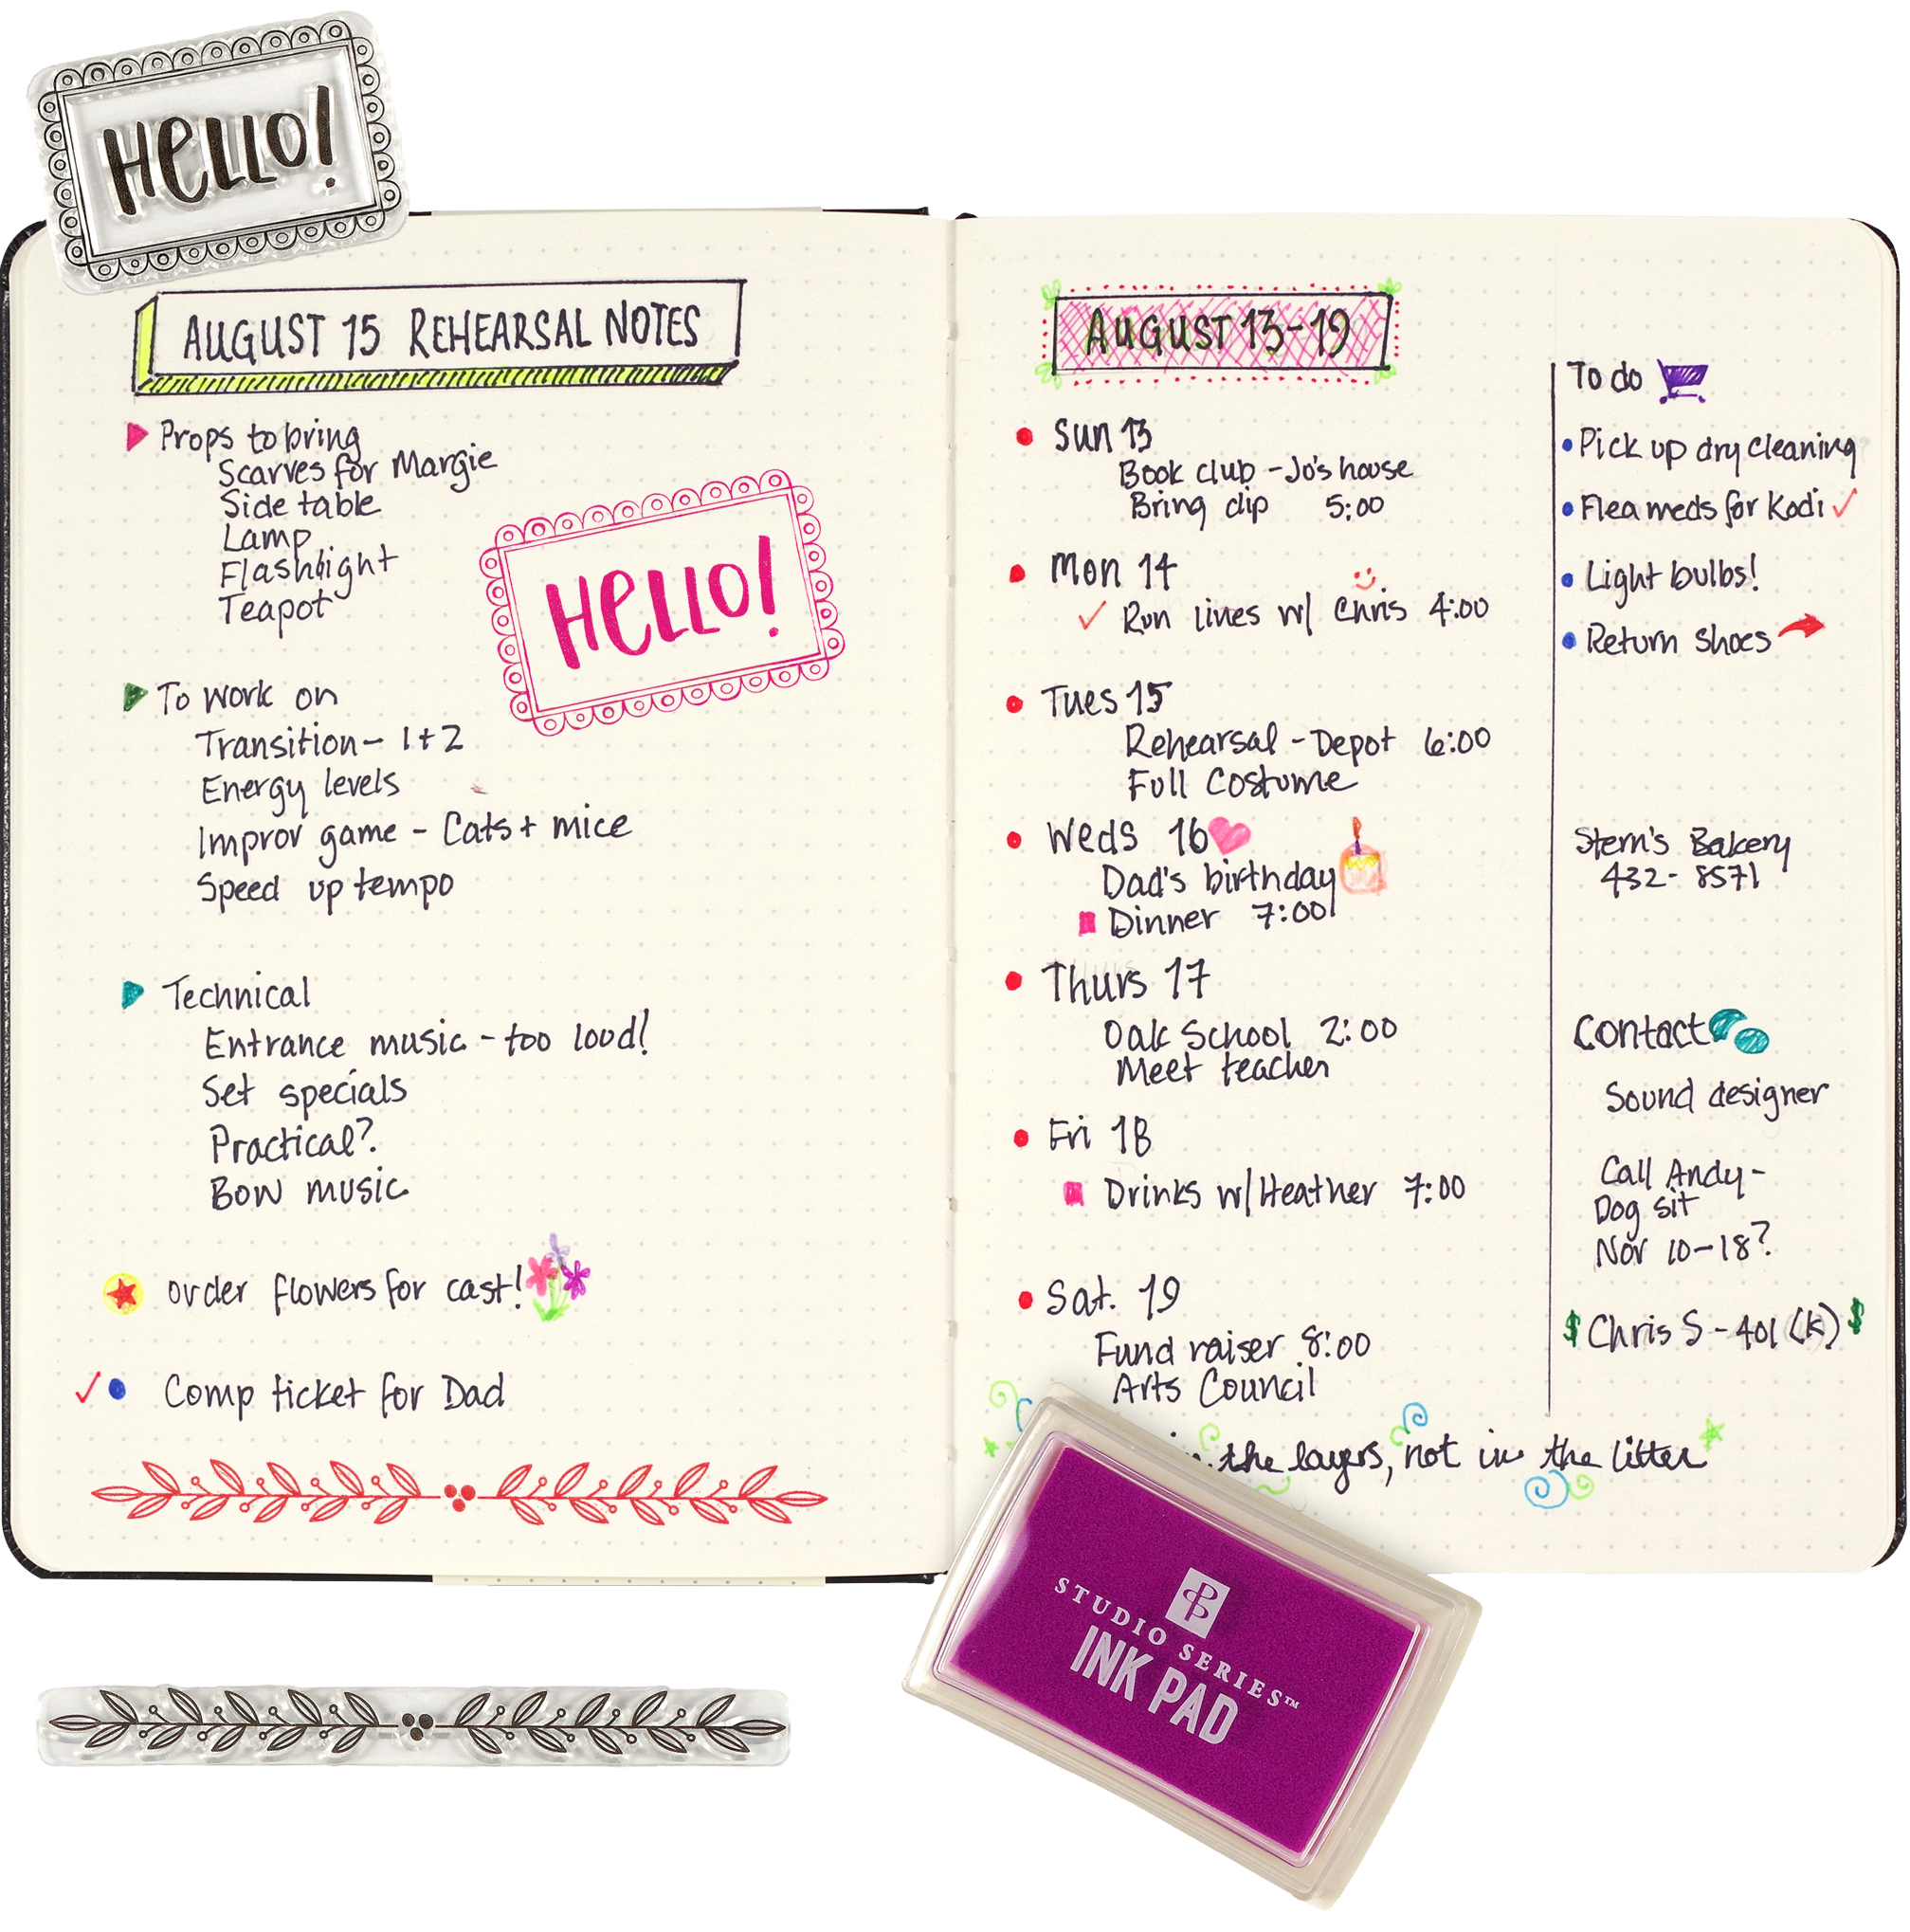 HELLO!
AUGUST 15 REHEARSAL NOTES
Props to bring
Scarves for Margie
Side table
Lamp
Flashlight
Teapot
HELLO!
To work on
Transition - 1+2
Energy levels
Improv game - Cats + mice
Speed up tempo
Technical
Entrance music - too loud!
Set specials
Practical?
Bow music
order flowers for cast!
Comp ticket for Dad
AUGUST 13-19
Sun 13
Book club - Jo's house
Bring dip 5:00
Mon 14
Run lines w/ Chris 4:00
Tues 15
Rehearsal - Depot 6:00
Full Costume
Weds 16
Dad's birthday
Dinner 7:00
Thurs 17
Oak School 2:00
Meet teacher
Fri 18
Drinks w/ Heather 7:00
Sat. 19
Fund raiser 8:00
Arts Council
To do
Pick up dry cleaning
Flea meds for Kodi
Light bulbs!
Return shoes
Stern's Bakery
432-8571
Contact
Sound designer
Call Andy -
Dog sit
Nov 10-18?
$ Chris S - 401 (k) $
in the layers, not in the litter
STUDIO SERIES™
INK PAD